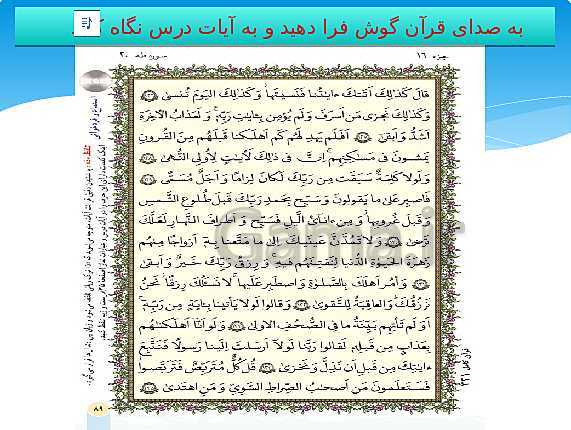 به صدای قرآن گوش فرا دهید و به آیات درس نگاه کنید
جزء ١٦
سوره طه ٢٠
قالَ كَذٰلِكَ أَتَتكَ ءايٰتُنا فَنَسيتَها وَكَذٰلِكَ اليَومَ تُنسىٰ
وَكَذٰلِكَ نَجزى مَن أَسرَفَ وَلَم يُؤمِن بِـٔايٰتِ رَبِّهِ وَلَعَذابُ الـٔاخِرَةِ
أَشَدُّ وَأَبقىٰ أَفَلَم يَهدِ لَهُم كَم أَهلَكنا قَبلَهُم مِنَ القُرونِ
يَمشونَ فى مَسٰكِنِهِم إِنَّ فى ذٰلِكَ لَـٔايٰتٍ لِأُولِى النُّهىٰ
وَلَولا كَلِمَةٌ سَبَقَت مِن رَبِّكَ لَكانَ لِزامًا وَأَجَلٌ مُسَمًّى
فَاصبِر عَلىٰ ما يَقولونَ وَسَبِّح بِحَمدِ رَبِّكَ قَبلَ طُلوعِ الشَّمسِ
وَقَبلَ غُروبِها وَمِن ءانائِ الَّيلِ فَسَبِّح وَأَطرافَ النَّهارِ لَعَلَّكَ
تَرضىٰ وَلا تَمُدَّنَّ عَينَيكَ إِلىٰ ما مَتَّعنا بِهِ أَزواجًا مِنهُم
زَهرَةَ الحَيوٰةِ الدُّنيا لِنَفتِنَهُم فيهِ وَرِزقُ رَبِّكَ خَيرٌ وَأَبقىٰ
وَأمُر أَهلَكَ بِالصَّلوٰةِ وَاصطَبِر عَلَيها لا نَسـَٔلُكَ رِزقًا نَحنُ
نَرزُقُكَ وَالعٰقِبَةُ لِلتَّقوىٰ وَقالوا لَولا يَأتينا بِـٔايَةٍ مِن رَبِّهِ
أَوَلَم تَأتِهِم بَيِّنَةُ ما فِى الصُّحُفِ الأولىٰ وَلَو أَنّا أَهلَكنٰهُم
بِعَذابٍ مِن قَبلِهِ لَقالوا رَبَّنا لَولا أَرسَلتَ إِلَينا رَسولًا فَنَتَّبِعَ
ءايٰتِكَ مِن قَبلِ أَن نَذِلَّ وَنَخزىٰ قُل كُلٌّ مُتَرَبِّصٌ فَتَرَبَّصوا
فَسَتَعلَمونَ مَن أَصحٰبُ الصِّرٰطِ السَّوِىِّ وَمَنِ اهتَدىٰ
Gama.ir
٣٢١
٨٩